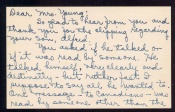 Dear Mrs. Young:
So glad to hear from you and
thank you for the clipping regarding
your son, David.
You asked if he talked or
if it was read by someone. He
talked himself, very clearly and
distinctly - but rather fast I
suppose to say all he wanted to.
One message (a Canadian) was
read by someone other than the